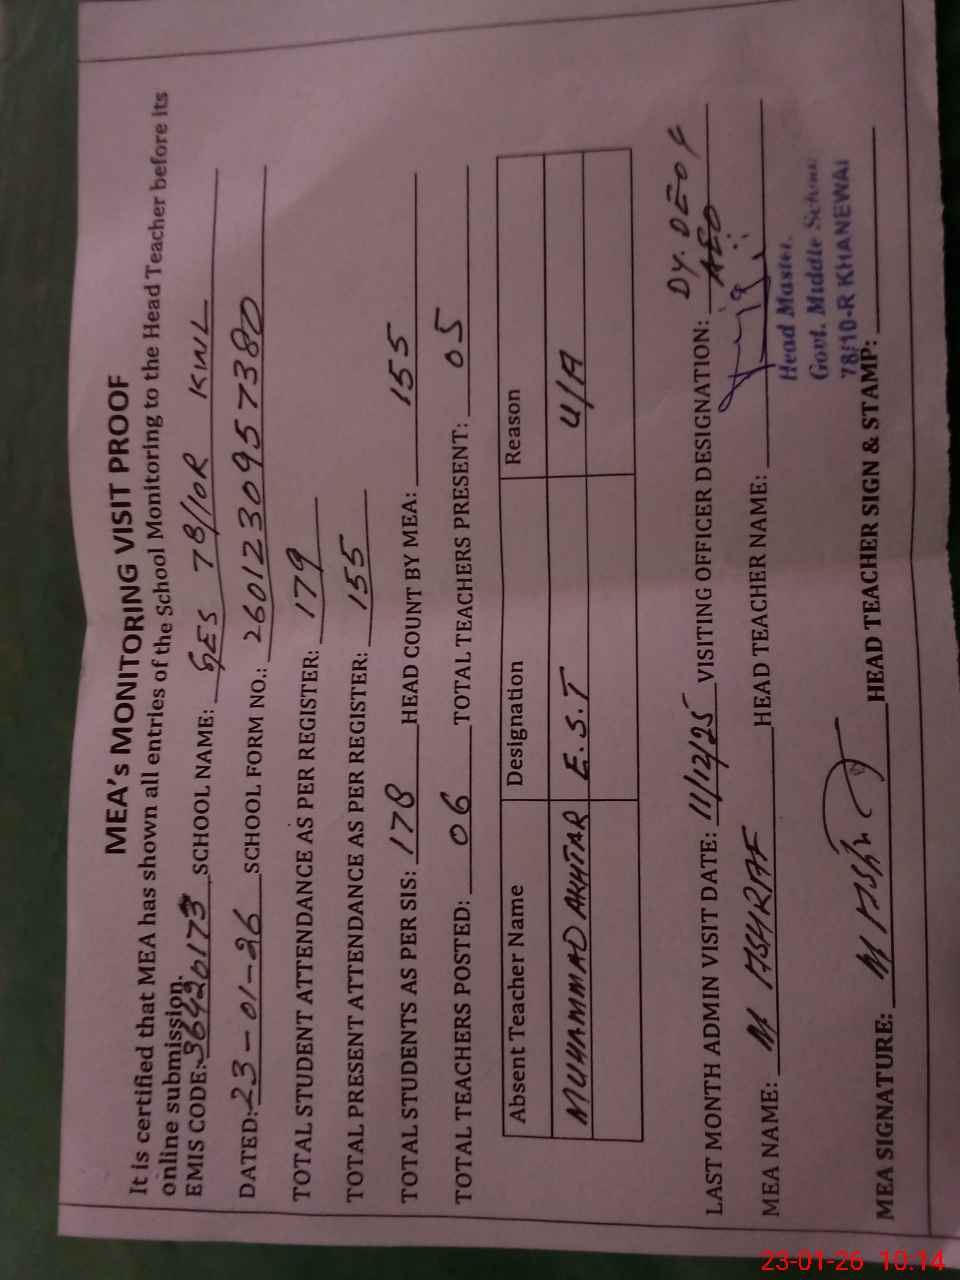 MEA's MONITORING VISIT PROOF
It is certified that MEA has shown all entries of the School Monitoring to the Head Teacher before its
online submission.
EMIS CODE: 36420173 SCHOOL NAME: GES 78/10R KWL
DATED: 23-01-26 SCHOOL FORM NO.: 2601230957380
TOTAL STUDENT ATTENDANCE AS PER REGISTER: 179
TOTAL PRESENT ATTENDANCE AS PER REGISTER: 155
TOTAL STUDENTS AS PER SIS: 178 HEAD COUNT BY MEA: 155
TOTAL TEACHERS POSTED: 06 TOTAL TEACHERS PRESENT: 05
Absent Teacher Name Designation Reason
MUHAMMAD AKHTAR E.S.T U/A
LAST MONTH ADMIN VISIT DATE: 11/12/25 VISITING OFFICER DESIGNATION: DY. DEO &
AEO
MEA NAME: M ASHRAF HEAD TEACHER NAME:
Head Master.
Govt. Middle School
78/10-R KHANEWAL
MEA SIGNATURE: M Ashraf HEAD TEACHER SIGN & STAMP:
23-01-26 10:14